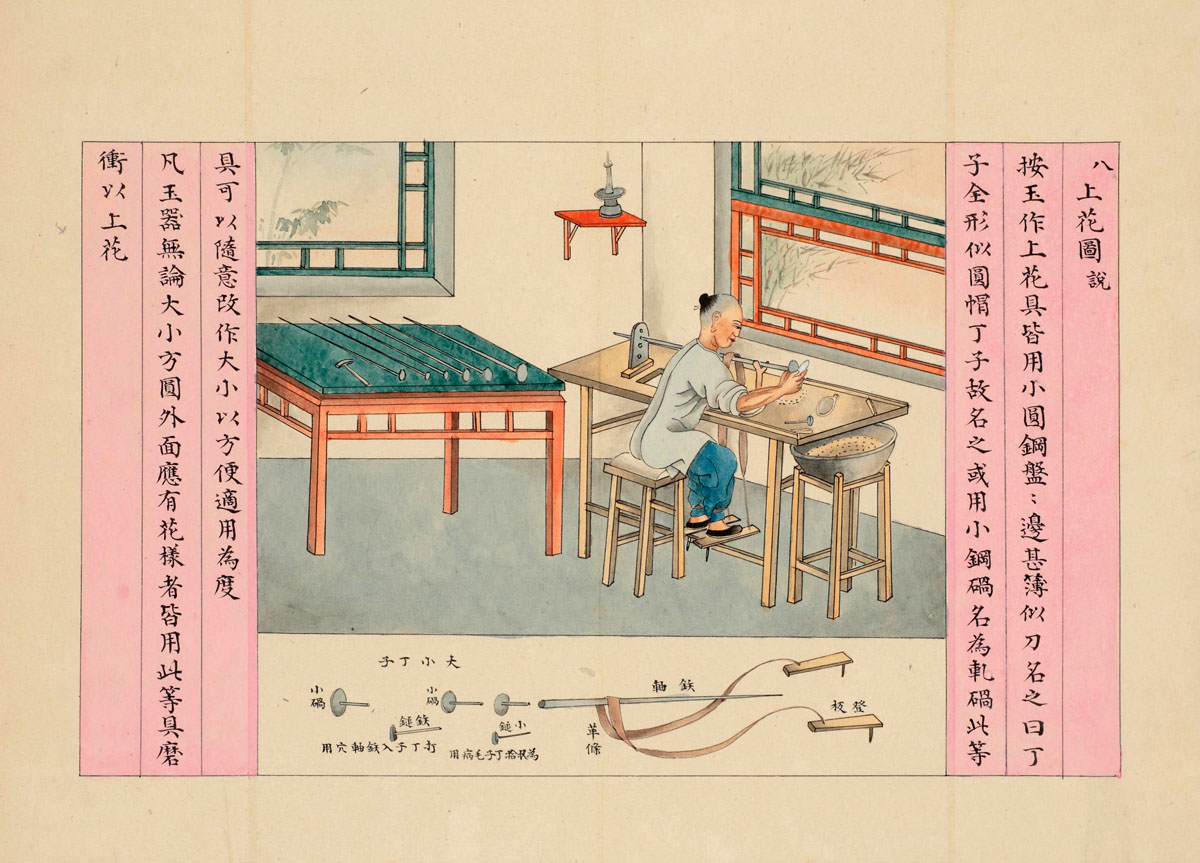 八上花圖說
按玉作上花具皆用小圓鋼盤〻邊甚簿似刀名之曰丁
子全形似圓帽丁子故名之或用小鋼碢名為軋碢此等
具可以隨意改作大小以方便適用為度
凡玉器無論大小方圓外面應有花樣者皆用此等具磨
衝以上花
大小丁子
小碢
小碢
鉄軸
登板
革條
鉄鎚
打丁子入鉄軸穴用
小鎚
為收拾丁子毛病用